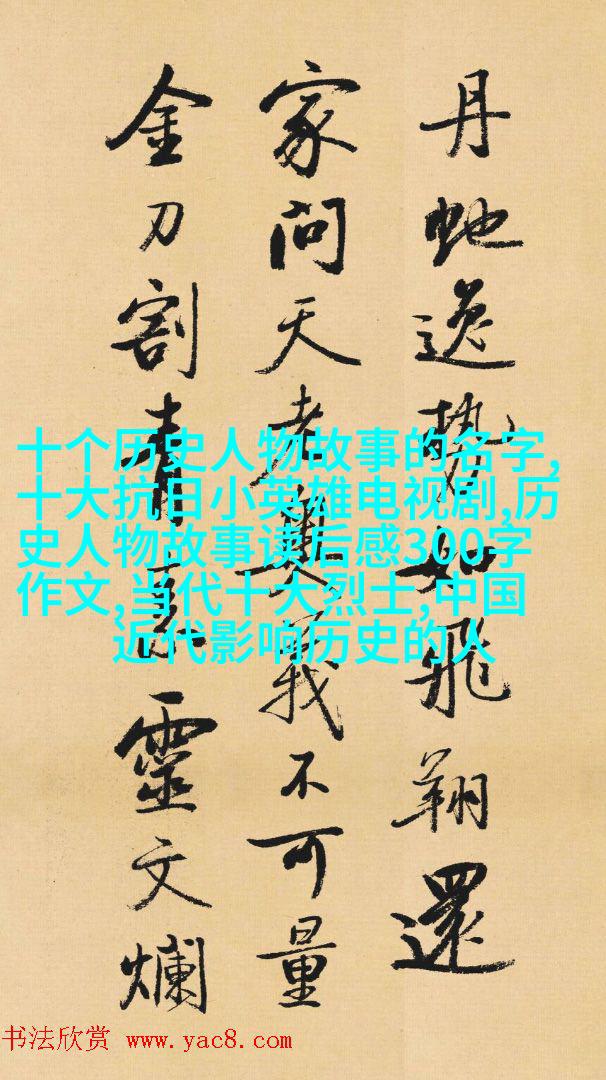 丹虵逸勢如飛翔還
家問天老奧義不可量
金刀割青素靈文爛
十个历史人物故事的名字,
十大抗日小英雄电视剧,历
史人物故事读后感300字
作文,当代十大烈士,中国
近代影响历史的人
书法欣赏 www.yac8.com